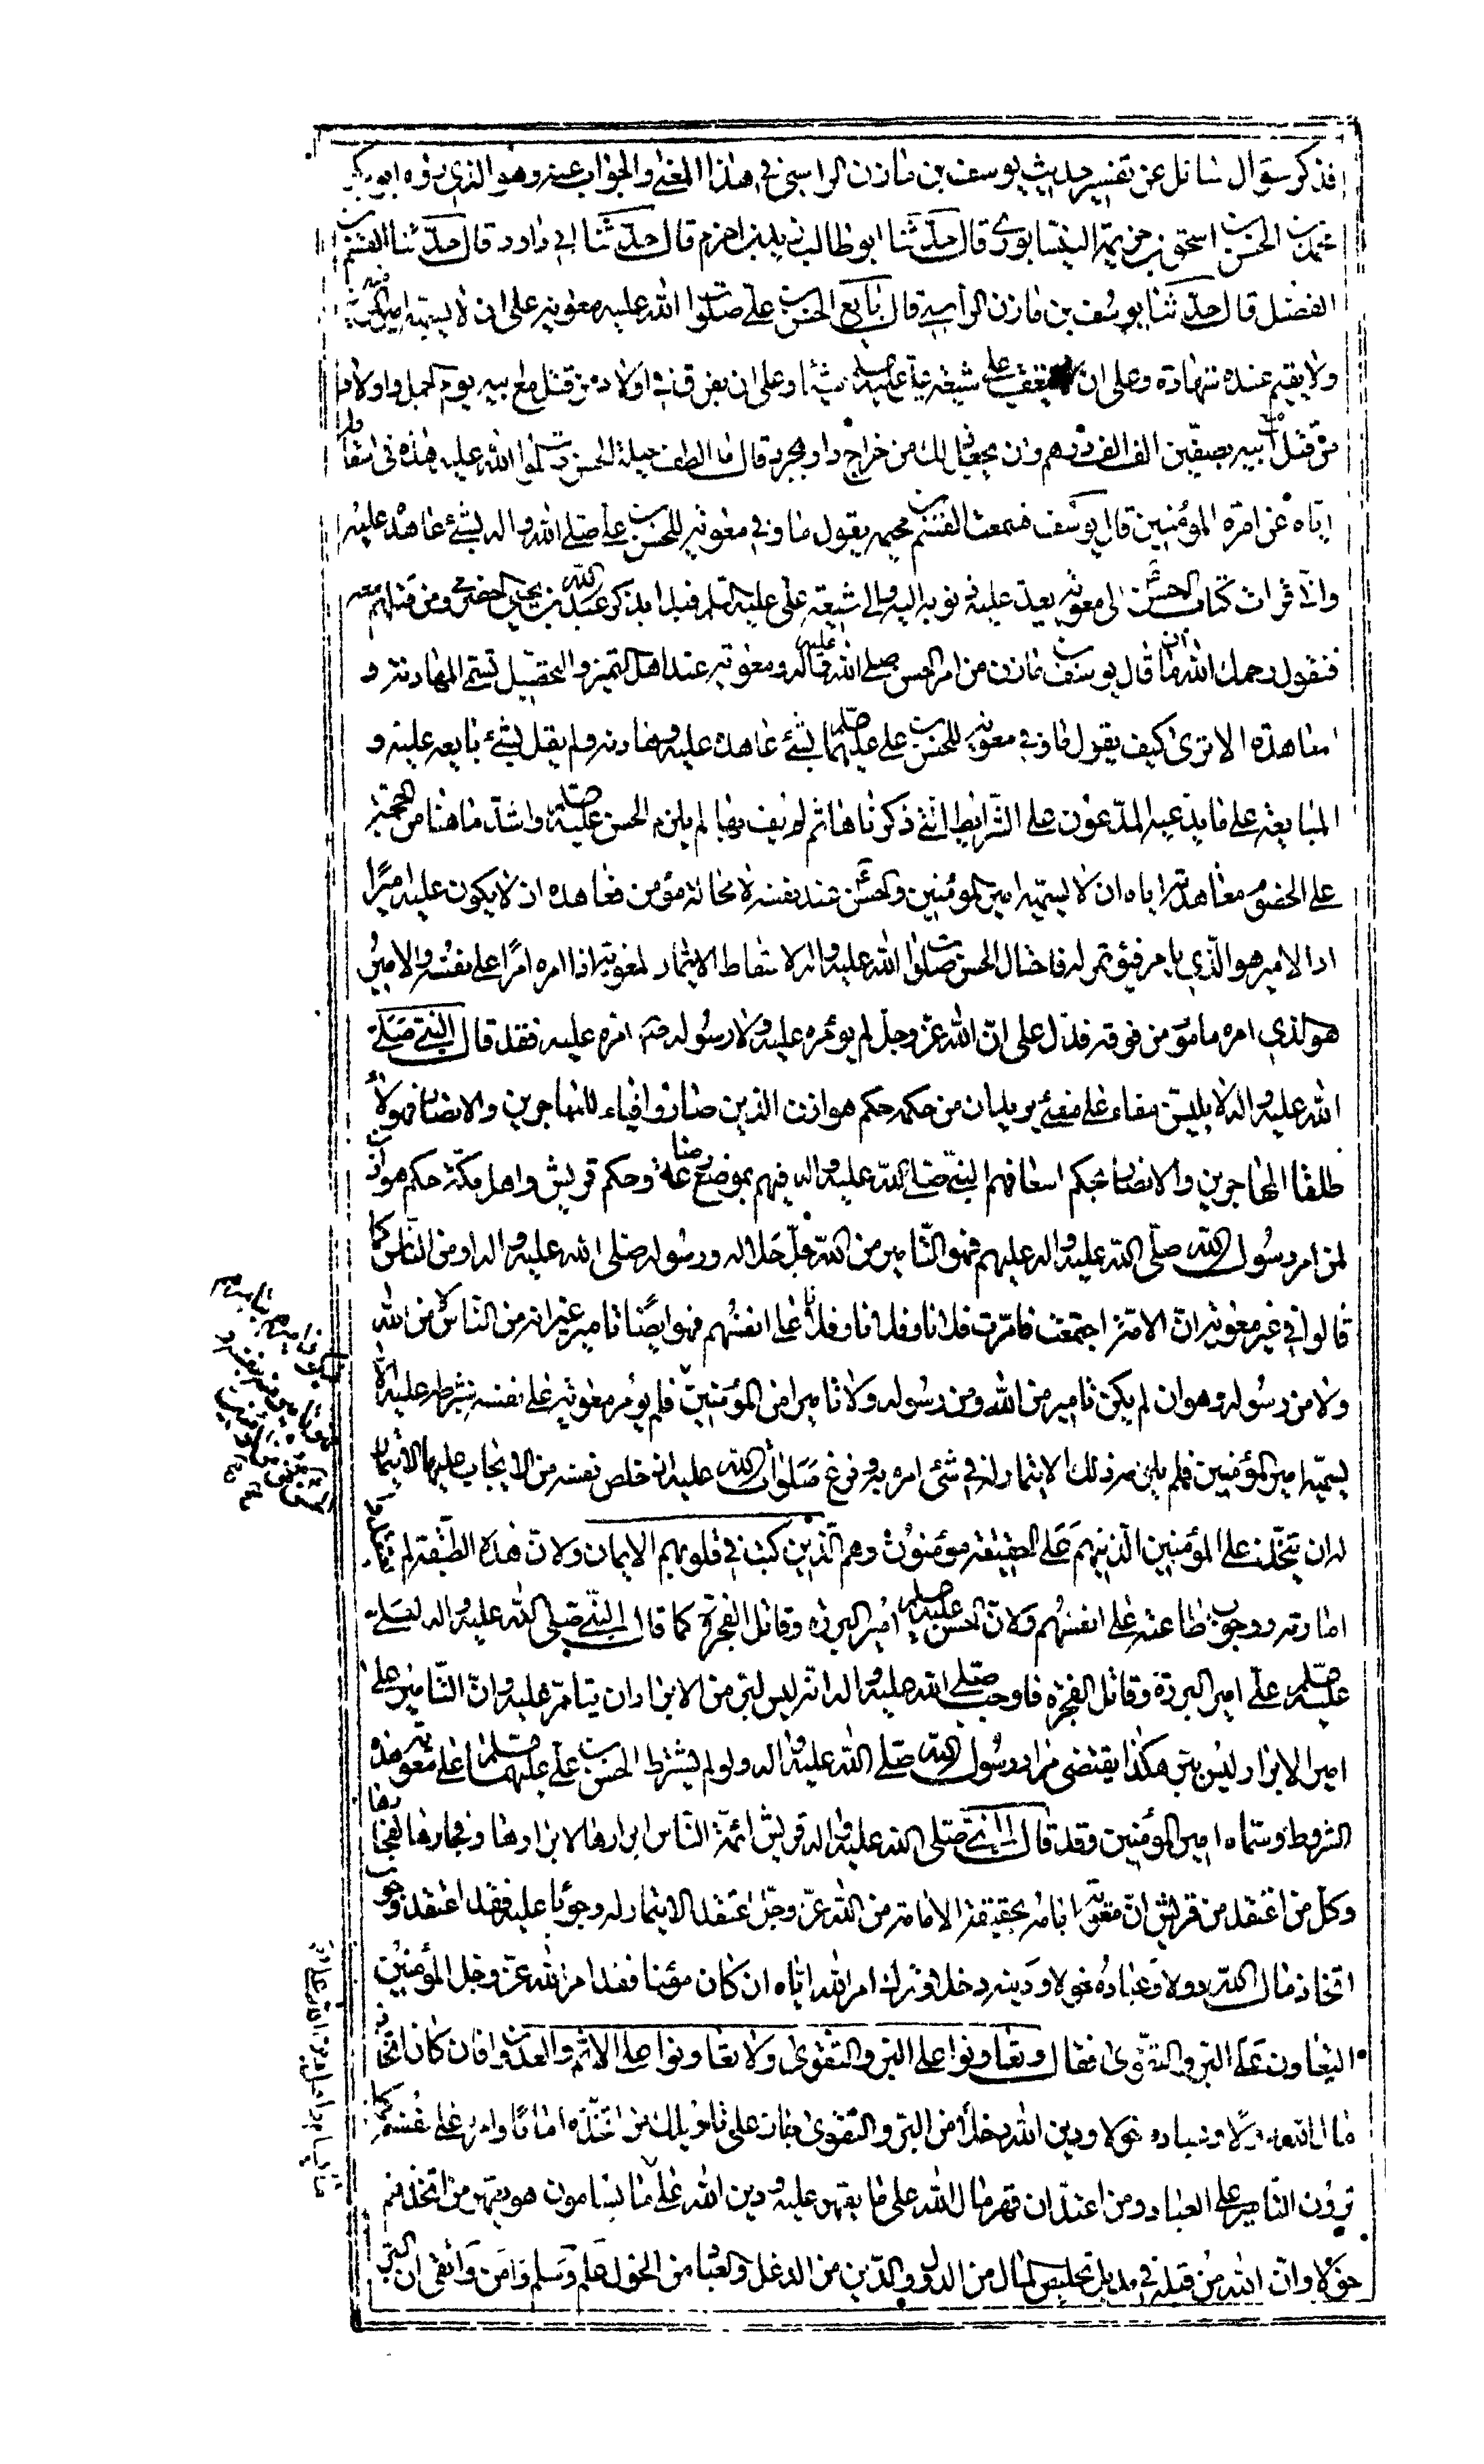 فذكر سؤال سائل عن تفسير حديث يوسف بن مازن الراسبي في هذا المعنى والجواب عنه وهو الذي رواه ابوبكر
محمد بن الحسن بن اسحق بن خزيمة النيسابوري قال حدثنا ابو طالب زيد بن احزم قال حدثنا ابي داود قال حدثنا القسم بن
الفضل قال حدثنا يوسف بن مازن الراسبي قال بايع الحسن بن علي صلوات الله عليه معوية على ان لا يسميه امير المؤمنين
ولا يقيم عنده شهادة وعلى ان لا يتعقب على شيعة علي عليه السلم شيئا وعلى ان يفرق في اولاد من قتل مع ابيه يوم الجمل واولاد
من قتل مع ابيه بصفين الف الف درهم وان يجعل ذلك من خراج دارابجرد قال ما الطف حيلة الحسن صلوات الله عليه هذه في اسقاطه
اياه عن امرة المؤمنين قال يوسف فسمعت القسم بن محيمة يقول ما وفى معوية للحسن بن علي صلى الله واله بشئ عاهده عليه
واني قرات كتاب الحسن الى معوية يعد عليه ذنوبه اليه والى شيعة علي عليه السلم فبدا بذكر عبد الله بن يحيى الحضرمي ومن قتلهم معه
فنقول رحمك الله ان ما قال يوسف بن مازن من امر الحسن صلى الله عليه واله ومعوية عند اهل التميز والتحصيل تسمى المهادنة و
المعاهدة الا ترى كيف يقول ما وفى معوية للحسن بن علي عليهما السلم بشئ عاهده عليه وهادنه ولم يقل بشئ بايعه عليه و
المبايعة على ما يدعيه المدعون على الشرايط التي ذكرناها ثم لم يف بها لم يلزم الحسن عليه السلم واشد ما هنا من الحجة
على الخصوم معاهدته اياه ان لا يسميه امير المؤمنين والحسن عند نفسه لا محالة مؤمن فعاهده ان لا يكون عليه اميرا
اذ الامير هو الذي يامر فيؤتمر له فاحتال الحسن صلوات الله عليه واله لاسقاط الايتمار لمعوية اذا امره امرا على نفسه والامير
هو الذي امره مامور من فوقه فدل على ان الله عز وجل لم يؤمره عليه ولا رسوله صم امره عليه فقد قال النبي صلى
الله عليه واله لا يلين مفاء على مفئ يريد ان من حكمه حكم هوازن الذين صاروا فيئا للمهاجرين والانصار فهؤلاء
طلقا المهاجرين والانصار بحكم اسعافهم النبي صلى الله عليه واله فيهم بموضع رضاعه وحكم قريش واهل مكة حكم هوازن
لمن امر رسول الله صلى الله عليه واله عليهم فهو التامير من الله جل جلاله ورسوله صلى الله عليه واله او من الناس كما
قالوا في غير معوية ان الامة اجتمعت فامرت فلانا وفلانا وفلانا على انفسهم فهو ايضا تامير غير انه من الناس لا من الله
ولا من رسوله وهو ان لم يكن تامير من الله ومن رسوله ولا تاميرا من المؤمنين فلم يؤمر معوية على نفسه بشرطه عليه الا
يسميه امير المؤمنين فلم يلزمه ذلك الايتمار له في شئ امره به وفرغ صلوات الله عليه اذ خلص نفسه من الايجاب عليها الايتمار
له ان يتخذ على المؤمنين الذين هم على الحقيقة مؤمنون وهم الذين كتب في قلوبهم الايمان ولان هذه الطبقة لم تعتقد
امارته ووجوب طاعته على انفسهم ولان الحسن عليه السلم امير البررة وقاتل الفجرة كما قال النبي صلى الله عليه واله لعلي
عليه السلم علي امير البررة وقاتل الفجرة فاوجب صلى الله عليه واله انه ليس لبر من الابرار ان يتامر عليه وان التامير على
امير الابرار ليس ببر هكذا يقتضي مراد رسول الله صلى الله عليه واله ولو لم يشترط الحسن بن علي عليهما السلم على معوية هذه
الشروط وسماه امير المؤمنين وقد قال النبي صلى الله عليه واله قريش ائمة الناس ابرارها لابرارها وفجارها لفجارها
وكل من اعتقد من قريش ان معوية امامه بحقيقة الامامة من الله عز وجل اعتقد الايتمار له وجوبا عليه فقد اعتقد وجوب
اتخاذ مال الله دولا وعباده خولا ودينه دخلا وترك امر الله اياه ان كان مؤمنا فقد امر الله عز وجل المؤمنين
بالتعاون على البر والتقوى فقال وتعاونوا على البر والتقوى ولا تعاونوا على الاثم والعدوان فان كان اتخاذ
مال الله دولا وعباده خولا ودين الله دخلا من البر والتقوى جاز على تاويلك من اتخذه اماما وامره على نفسه كما
ترون التامير على العباد ومن اعتقد ان قهر مال الله على ما يقهر عليه ودين الله على ما يسامون هو بقهر من اتخذهم
خولا وان الله من قبله في مديل تخليص المال من الدول والدين من الدغل والعباد من الخول علم وسلم وامن واتقى ان البر